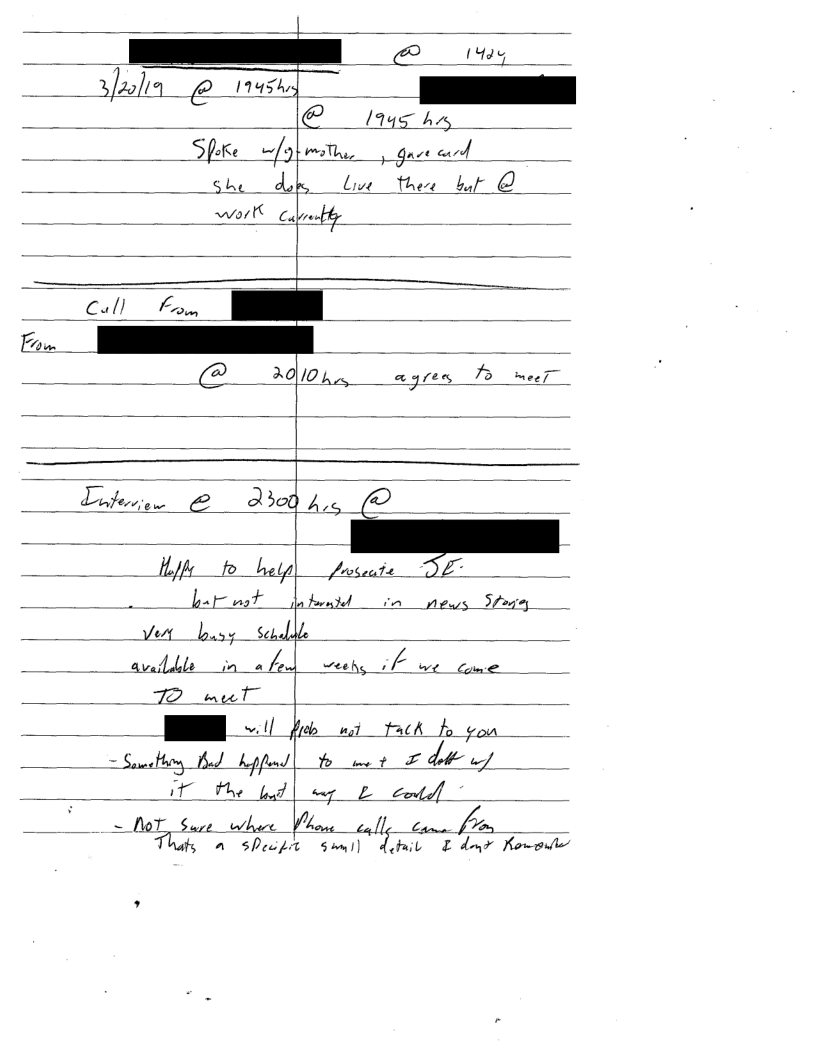 @ 1424
3/20/19 @ 1945hrs
@ 1945 hrs
Spoke w/g-mother, gave card
she does Live there but @
work currently
Call From
From
@ 2010 hrs agrees to meet
Interview @ 2300 hrs @
Happy to help prosecute JE.
but not interested in news Stories
Very busy schedule
available in a few weeks if we come
TO meet
will prob not talk to you
- Something Bad happened to me + I dealt w/
it the best way I could
- Not sure where Phone calls came from
Thats a specific small detail I dont Remember